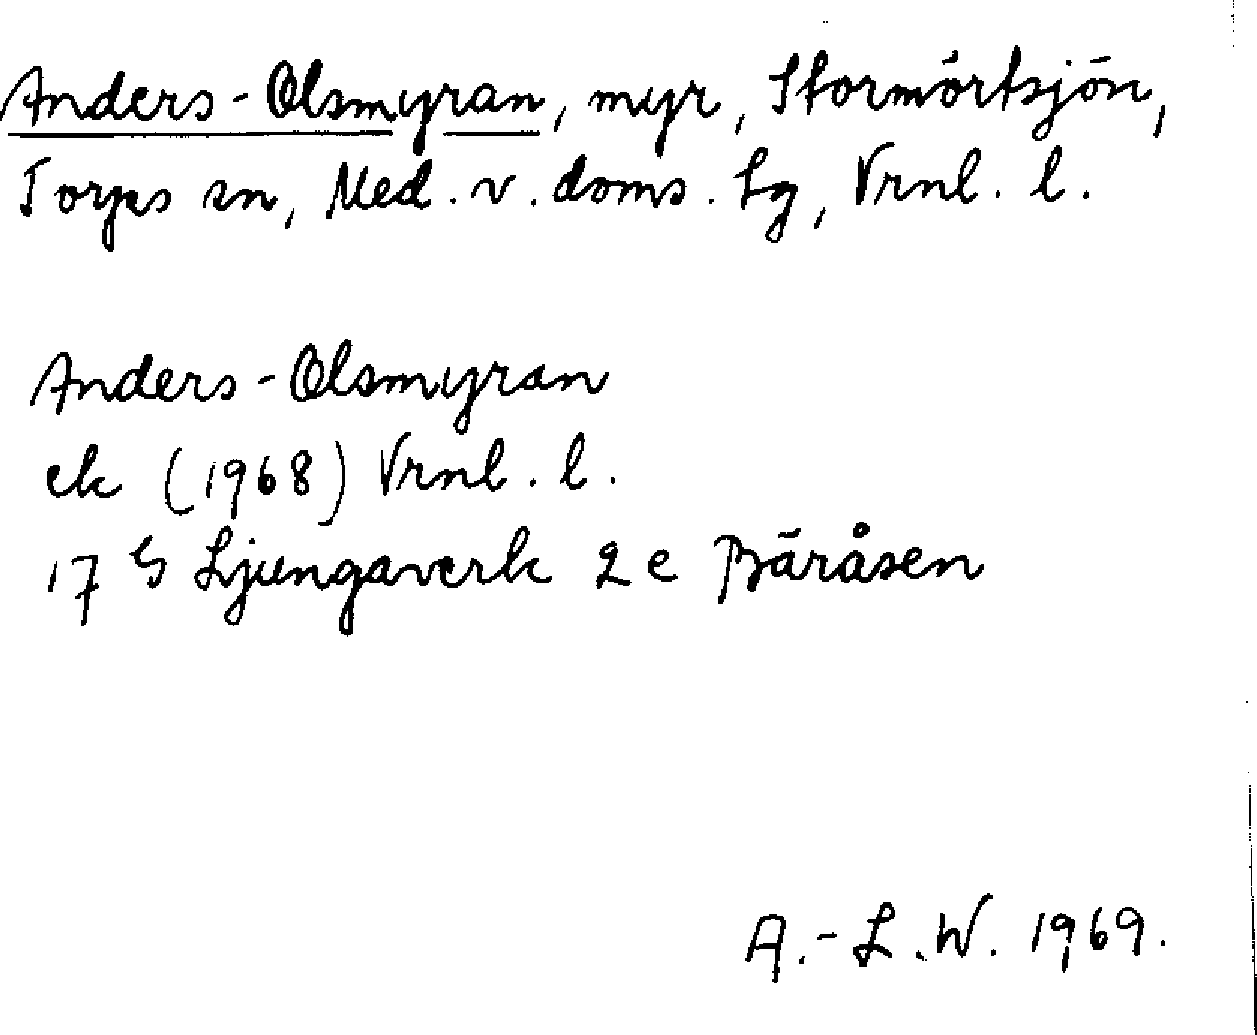 Anders-Olsmyran, myr, Stormörtsjön,
Torps sn, Med. v. doms. tg, Vrnl. l.
Anders-Olsmyran
ek (1968) Vrnl. l.
17 G Ljungaverk 2 e Bäråsen
A.-L.W. 1969.